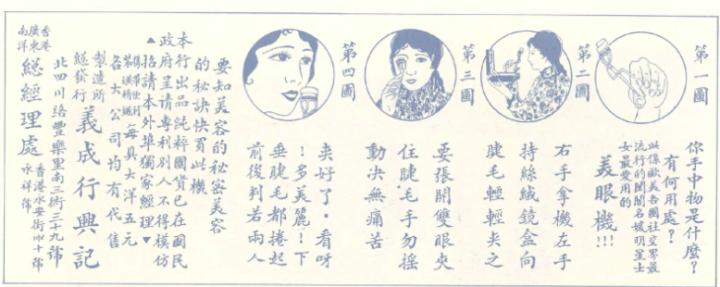 第一圖
你手中物是什麼？
有何用處？
此係歐美各國社交界最
流行的閨閣名媛明星士
女最愛用的
美眼機！！！
第二圖
右手拿機左手
持絲絨鏡盒向
睫毛輕輕夾之
第三圖
要張開雙眼夾
住睫毛手勿搖
動決無痛苦
第四圖
夾好了。看呀
！多美麗！下
垂睫毛都捲起
前後判若兩人
要知美容的秘密美容
的秘訣快買此機
本行出品純粹國貨已在國民
政府呈請專利別人不得模仿
▲招請本外埠獨家經理▼
每具大洋五元
各大公司均有代售
製造所
總發行
義成行興記
北四川路豐樂里南三街三十九號
香港
廣東
南洋
總經理處
香港永安街四十號
永祥號